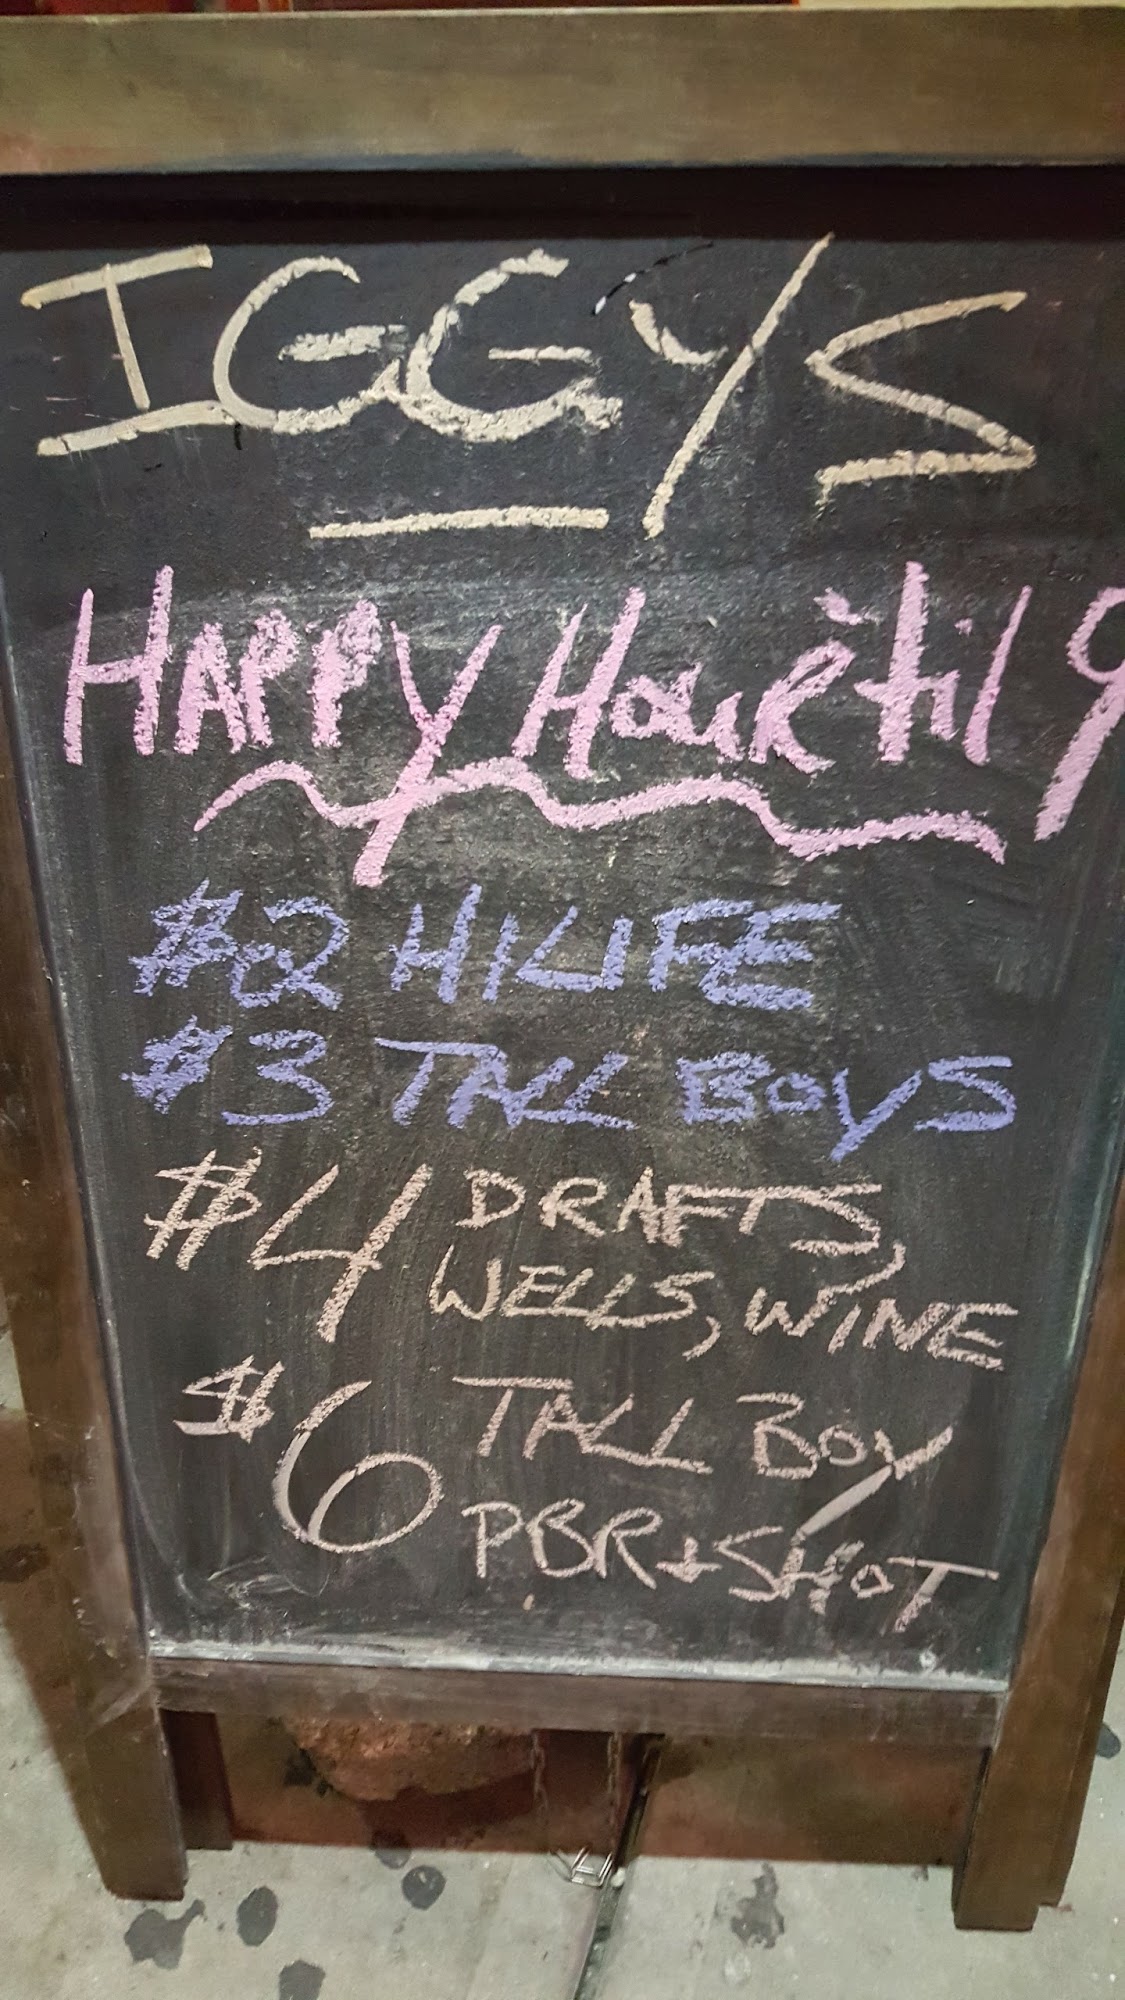 IGGYS
HAPPY HOUR 'til 9
$2 HILIFE
$3 TALL BOYS
$4 DRAFTS,
WELLS, WINE
$6 TALL BOY
PBR + SHOT